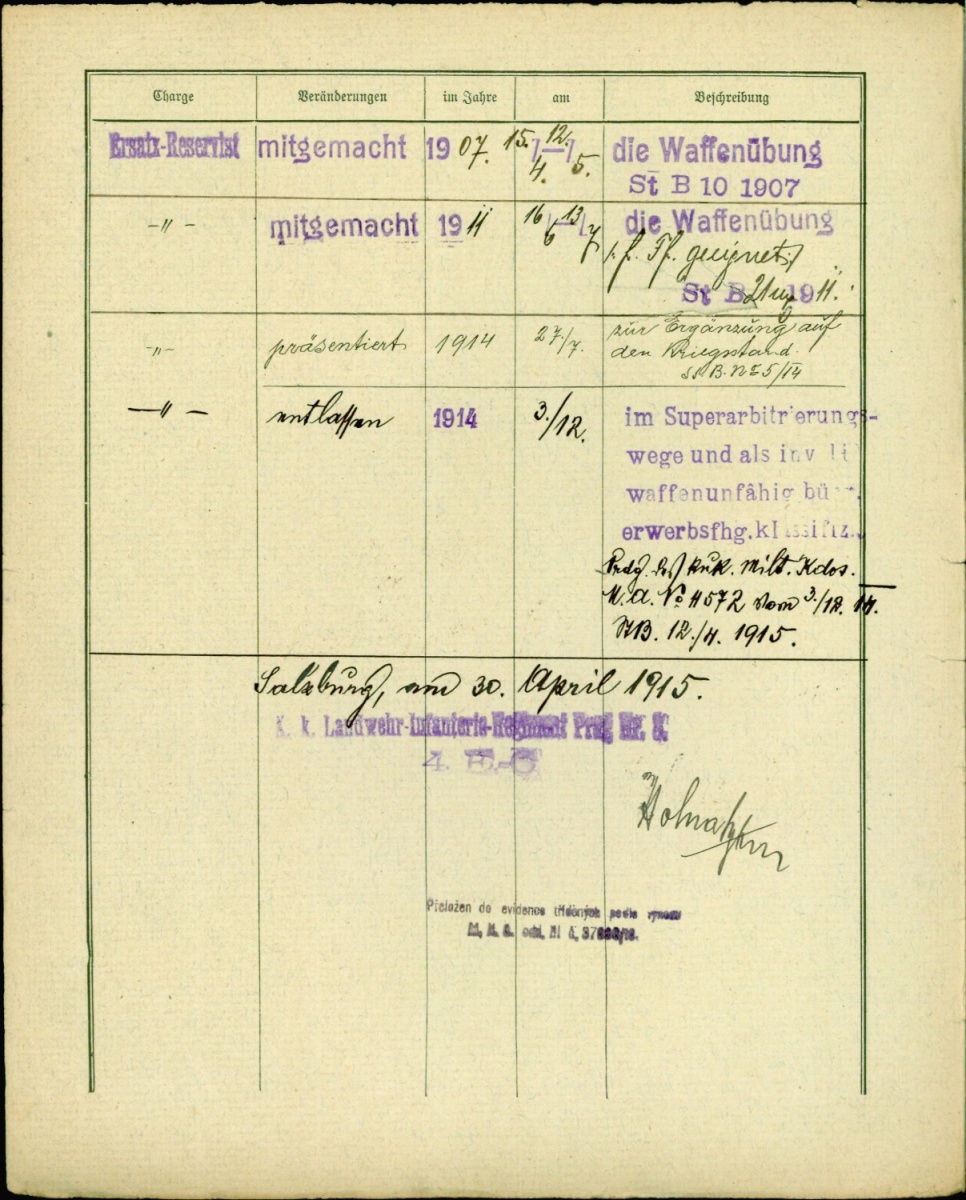 Charge Veränderungen im Jahre am Beschreibung
Ersatz-Reservist mitgemacht 1907. 15./4. — 12./5. die Waffenübung
St B 10 1907
–〃– mitgemacht 1911 16/6 — 13/7 die Waffenübung
geeignet
St B 1911.
–〃– präsentiert 1914 27/7. zur Ergänzung auf
den Kriegsstand.
St.B. No 5/14
–〃– entlassen 1914 3./12. im Superarbitrierungs-
wege und als
waffenunfähig
erwerbsfhg.
kuk. Milt. Kdos.
M.A. No 11572 vom 3./12. 14.
StB. 12./4. 1915.
Salzburg, am 30. April 1915.
K. k. Landwehr-Infanterie-Regiment Prag Nr. 8.
4.
Přeložen do evidence tříděných podle výnosu